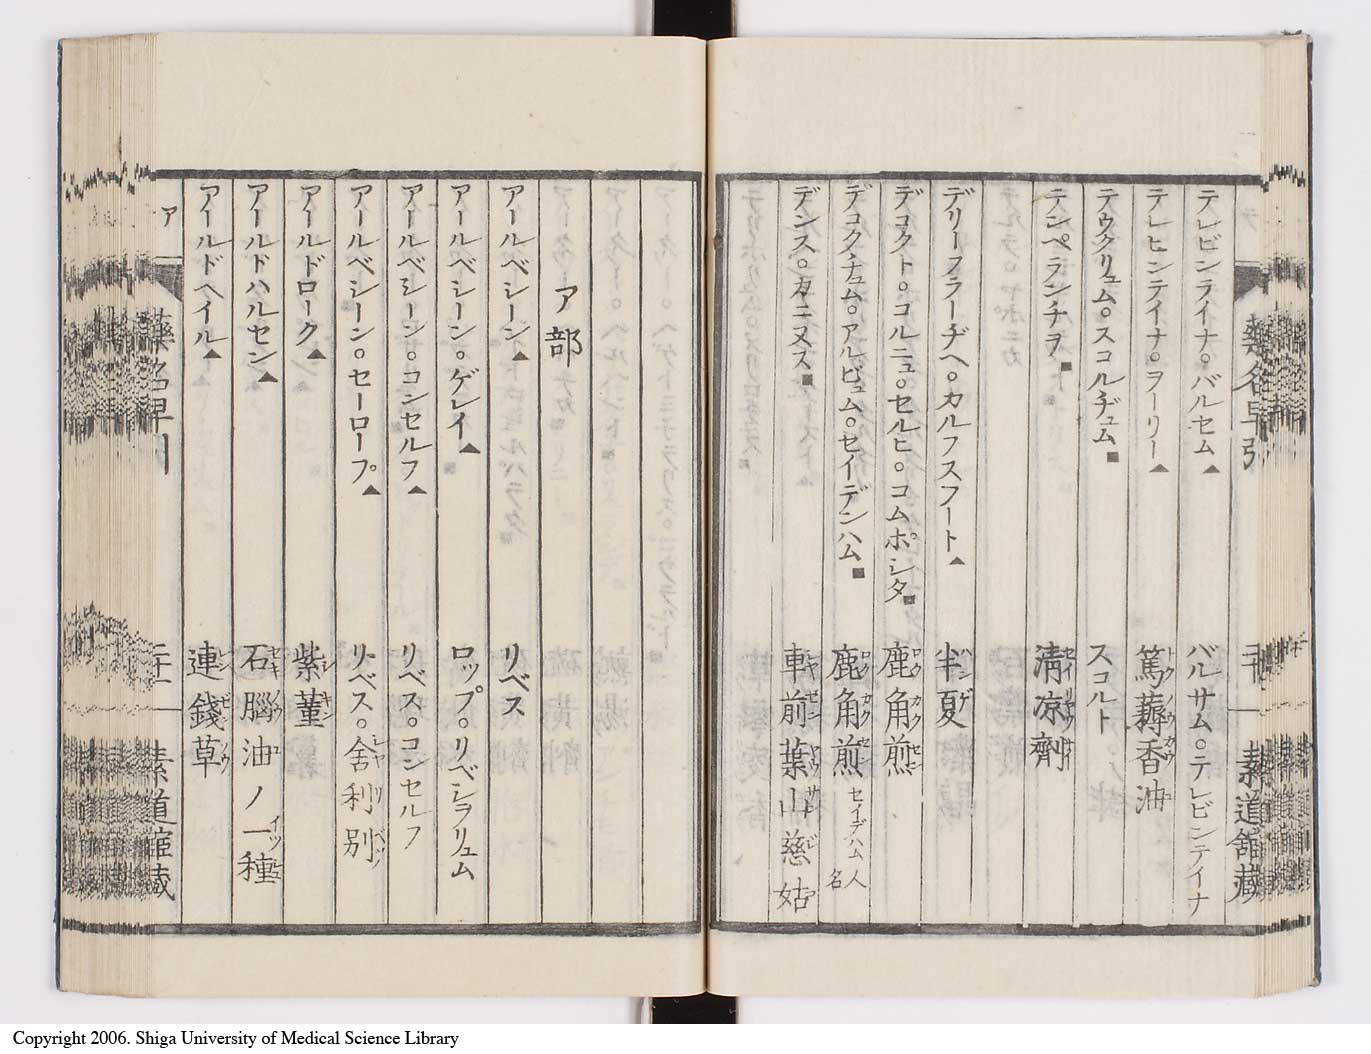 テレビンライナ。バルセム▲ バルサム。テレビンテイナ
テレヒンテイナ。ヲーリー▲ 篤耨香油
テウクリュム。スコルヂュム■ スコルト
テンペランチヲ■ 清凉劑
デリーフラーヂヘ。カルフスフート▲ 半夏
デコクト。コルニュ。セルヒ。コムポシタ■ 鹿角煎
デコクチュム。アルビュム。セイデンハム■ 鹿角煎 セイデハム人名
デンス。カニヌス■ 車前葉山慈姑
藥名早引
素道館藏
ア部
アールベシーン▲ リベス
アールベシーン。ゲレイ▲ ロップ。リベシラリュム
アールベシーン。コンセルフ▲ リベス。コンセルフ
アールベシーン。セーロープ▲ リベス。舎利別
アールドローク▲ 紫菫
アールドハルセン▲ 石腦油ノ一種
アールドヘイル▲ 連錢草
ア
Copyright 2006. Shiga University of Medical Science Library